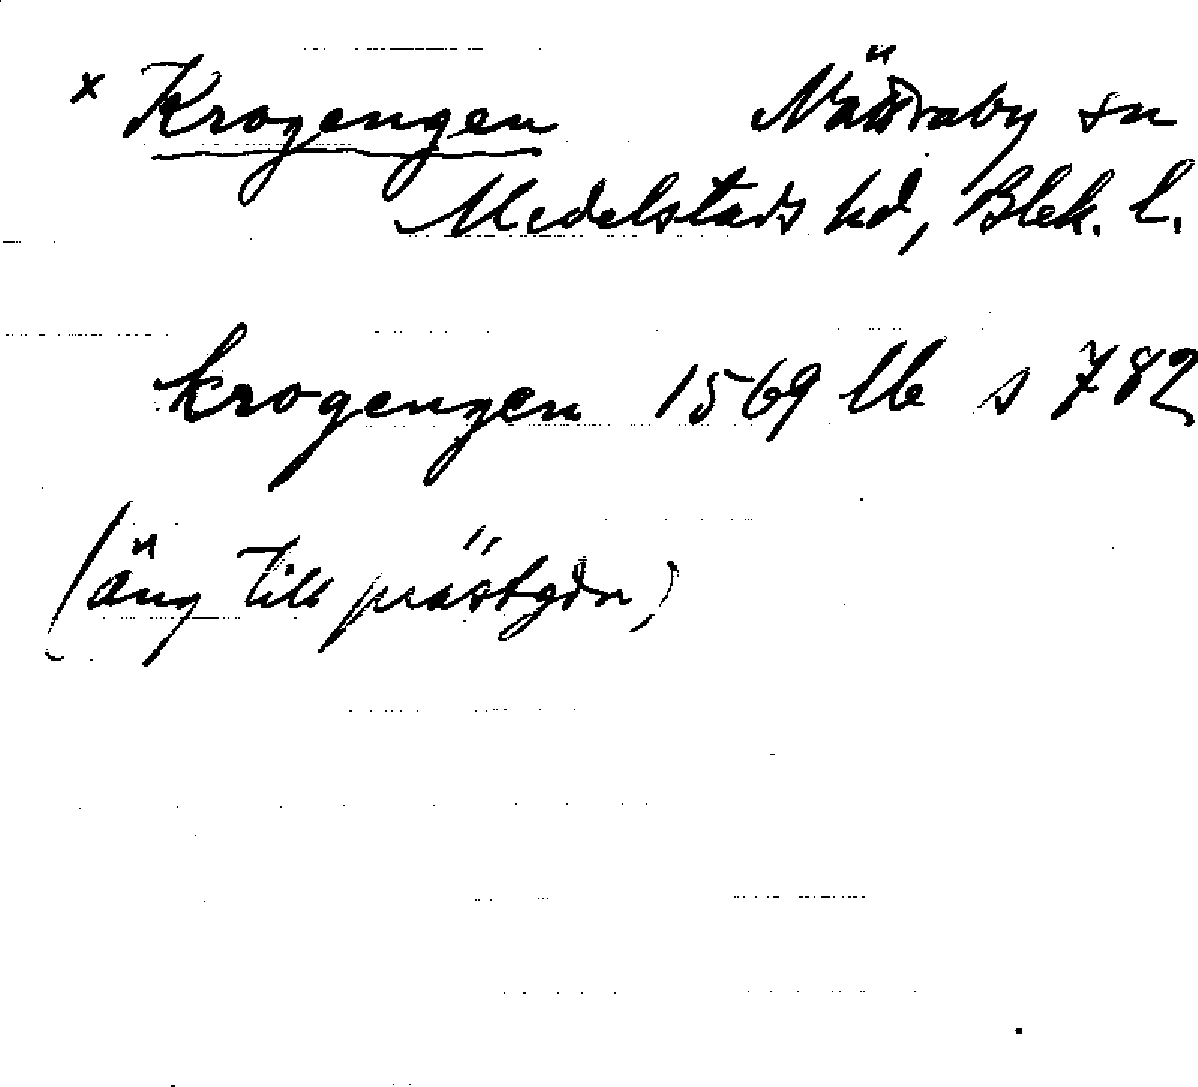 × Krogengen Nättraby sn
Medelstads hd, Blek. l.
krogengen 1569 lb s 782
(äng till prästgdn)